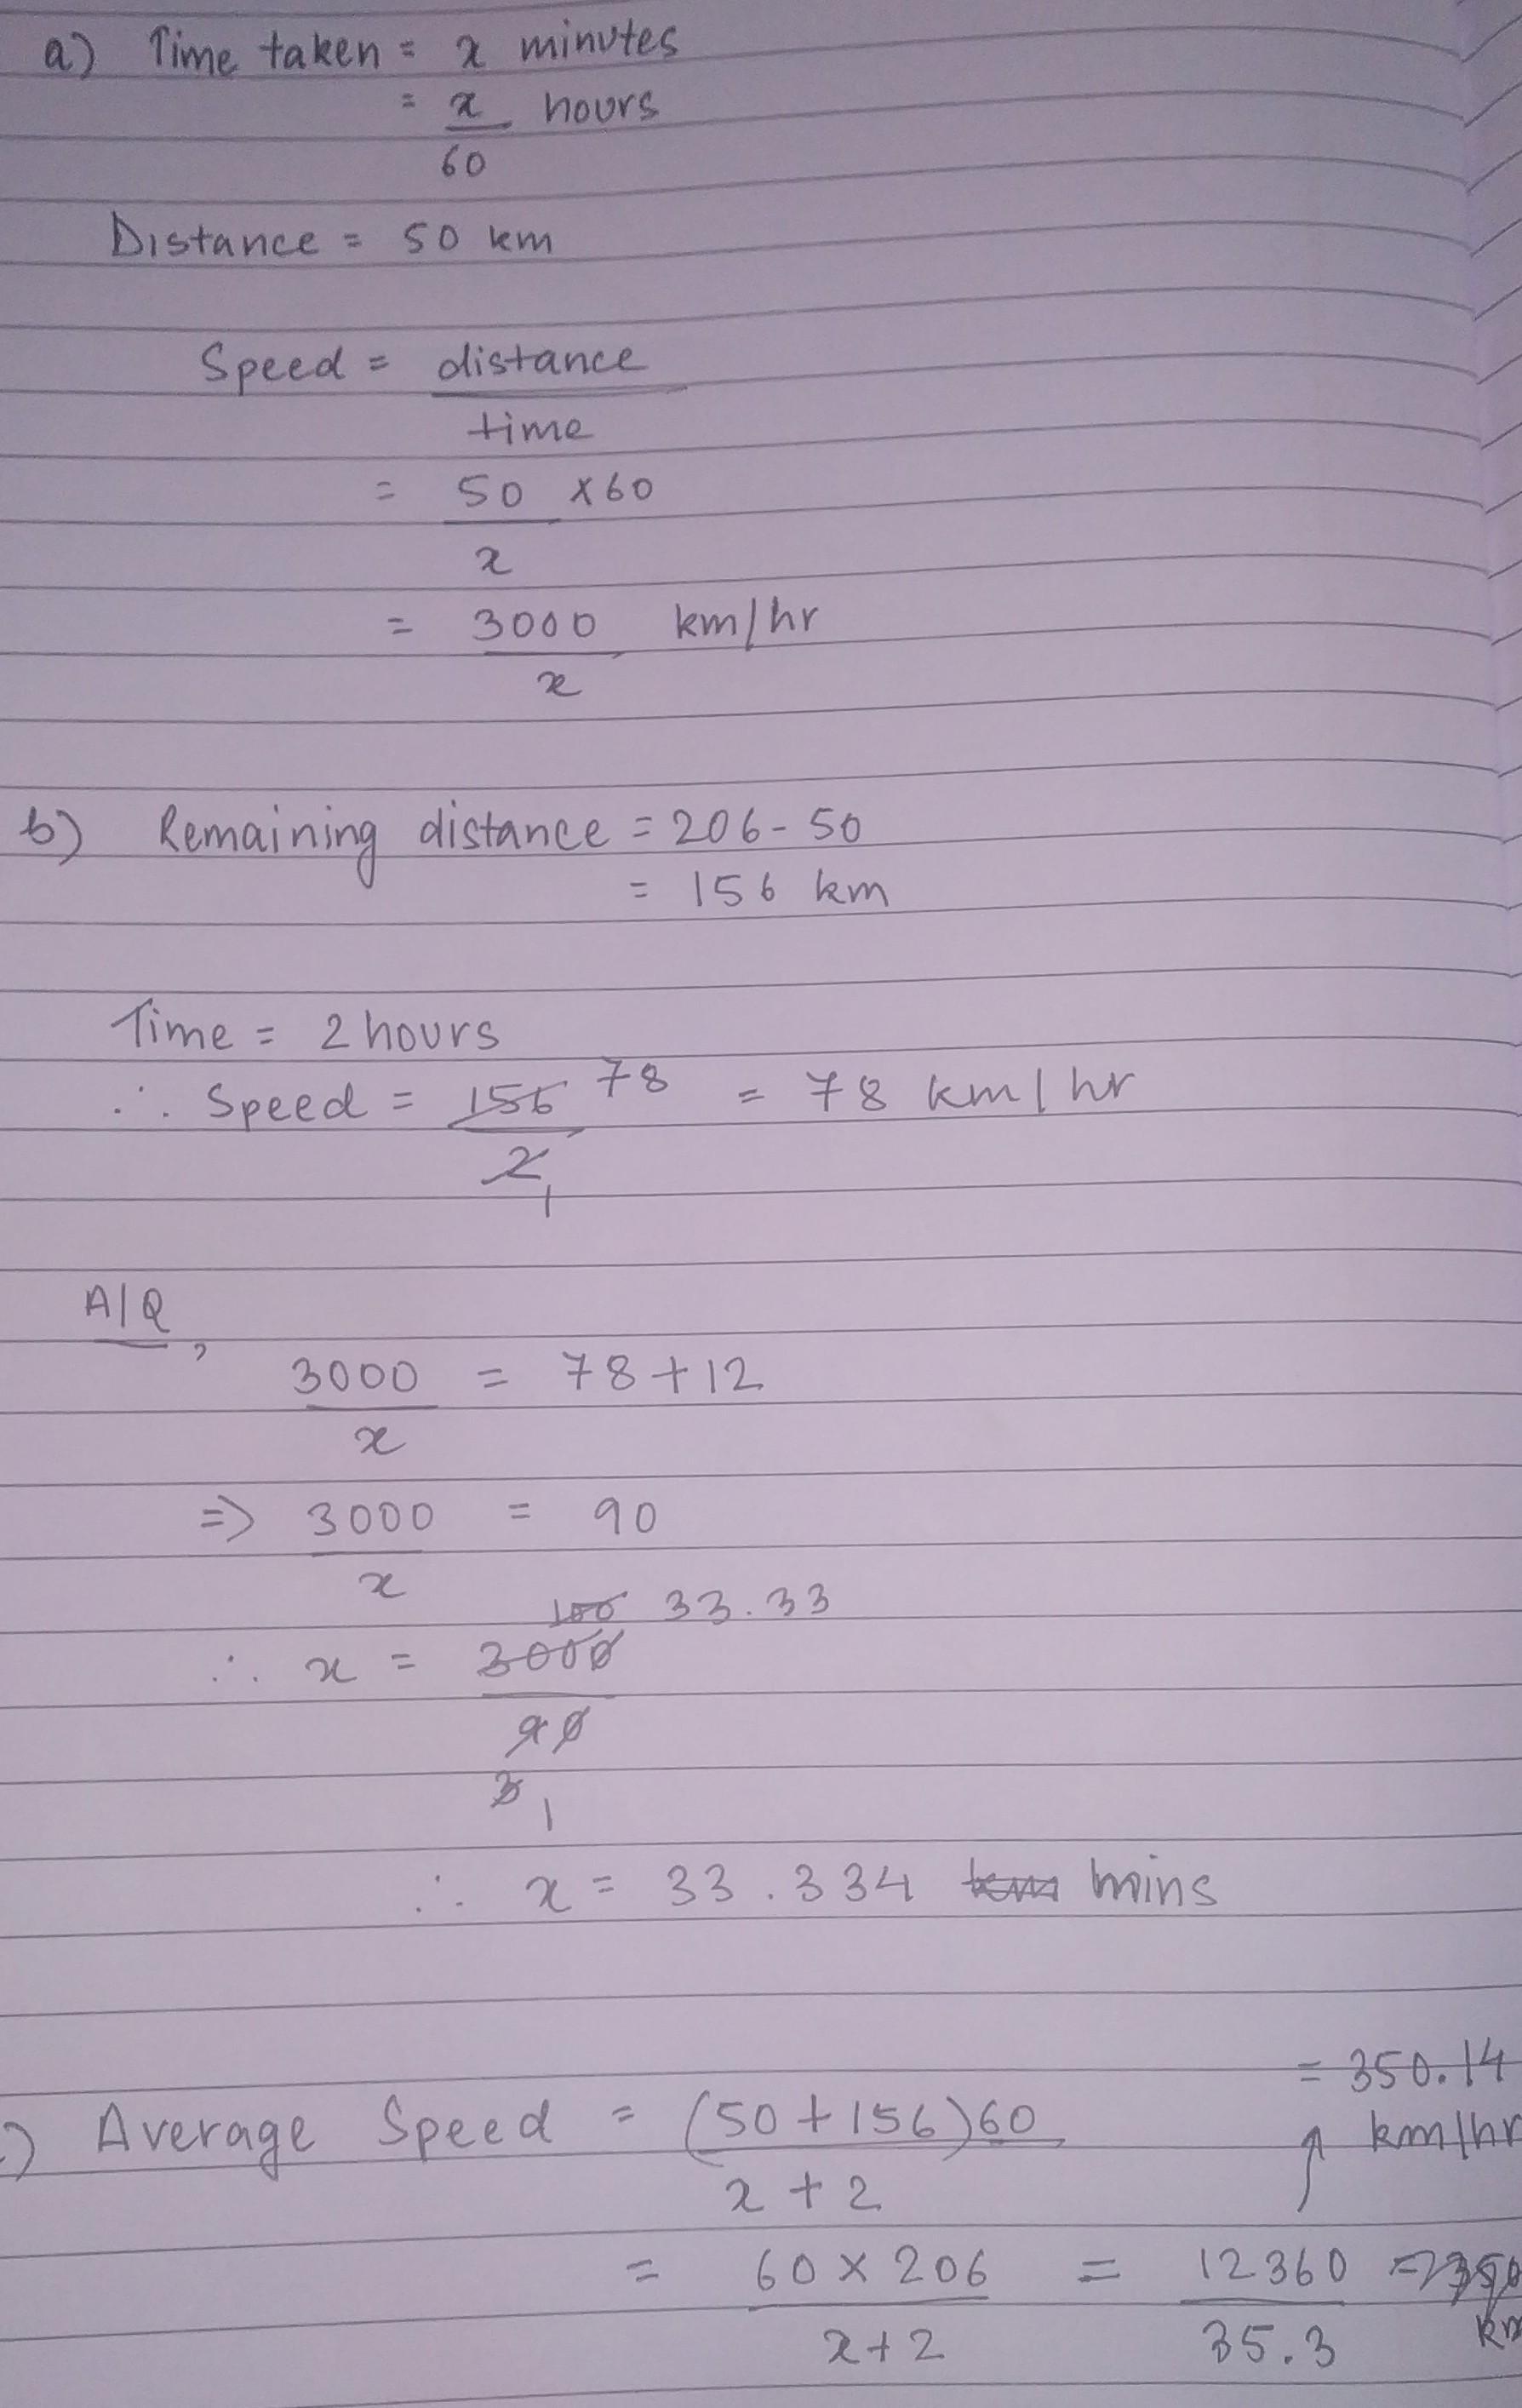 a) Time taken = x minutes
= x/60 hours
Distance = 50 km
Speed = distance/time
= 50/x × 60
= 3000/x km/hr
b) Remaining distance = 206 - 50
= 156 km
Time = 2 hours
∴ Speed = 156/2 78 1 = 78 km/hr
A/Q,
3000/x = 78 + 12
=> 3000/x = 90
100 33.33
∴ x = 3000/90
3 1
∴ x = 33.334 mins
= 350.14
km/hr
) Average Speed = (50 + 156)60/x + 2
= 60 × 206/x + 2 = 12360/35.3